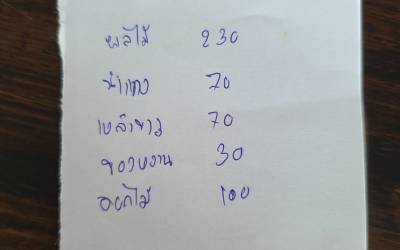 ผลไม้ 230
น้ำแดง 70
เหล้าขาว 70
ของหวาน 30
ดอกไม้ 100